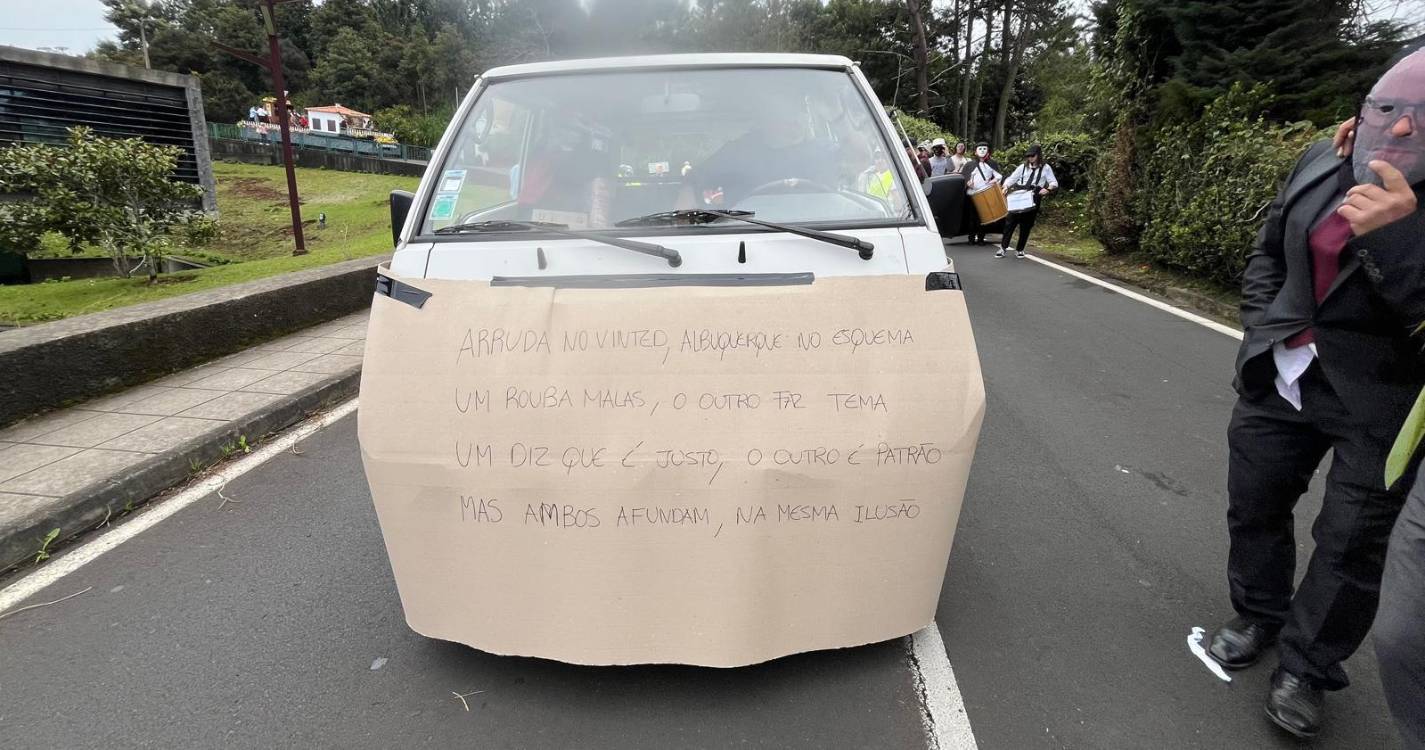 ARRUDA NO VINTED, ALBUQUERQUE NO ESQUEMA
UM ROUBA MALAS, O OUTRO FAZ TEMA
UM DIZ QUE É JUSTO, O OUTRO É PATRÃO
MAS AMBOS AFUNDAM, NA MESMA ILUSÃO